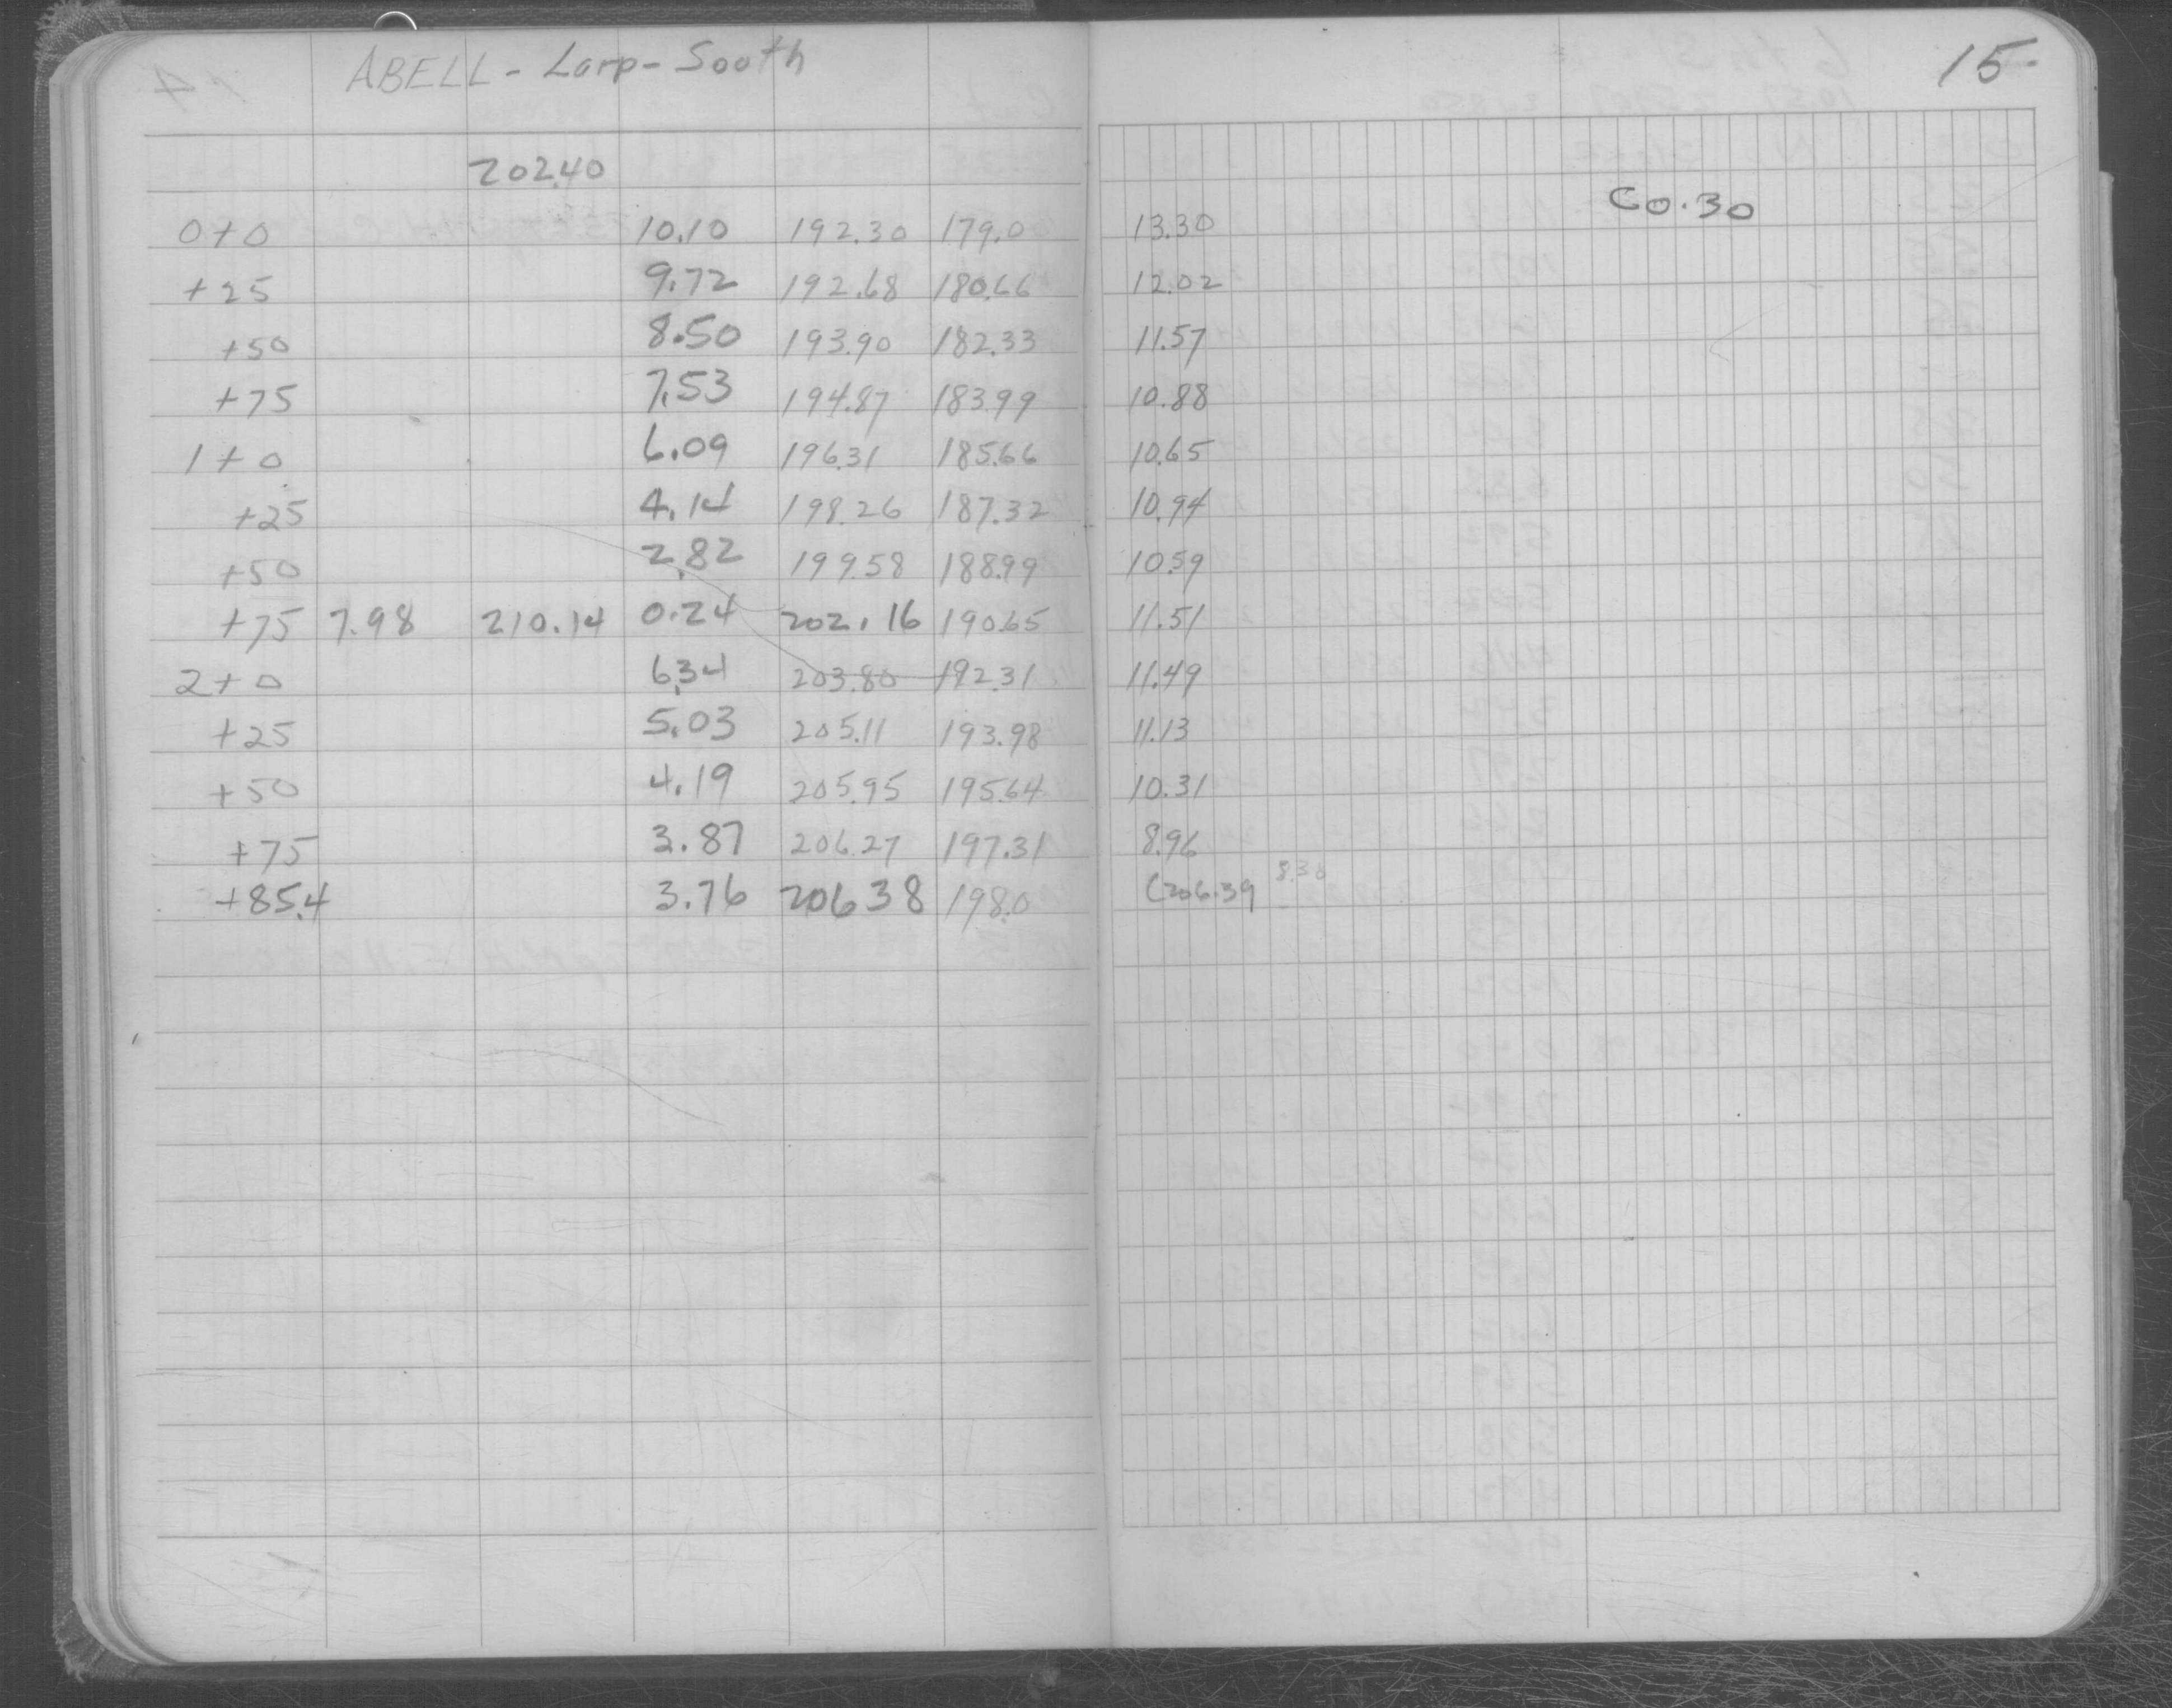 ABELL - Larp - South
15
202.40
C0.30
0+0 10.10 192.30 179.0 13.30
+25 9.72 192.68 180.66 12.02
+50 8.50 193.90 182.33 11.57
+75 7.53 194.87 183.99 10.88
1+0 6.09 196.31 185.66 10.65
+25 4.14 198.26 187.32 10.94
+50 2.82 199.58 188.99 10.59
+75 7.98 210.14 0.24 202.16 190.65 11.51
2+0 6.34 203.80 192.31 11.49
+25 5.03 205.11 193.98 11.13
+50 4.19 205.95 195.64 10.31
+75 3.87 206.27 197.31 8.96
+85.4 3.76 206 38 198.0 (206.39 8.38